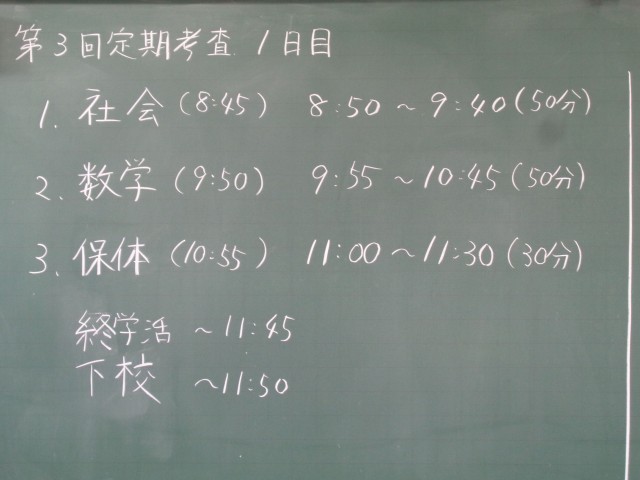 第3回定期考査 1日目
1. 社会 (8:45) 8:50 ~ 9:40 (50分)
2. 数学 (9:50) 9:55 ~ 10:45 (50分)
3. 保体 (10:55) 11:00 ~ 11:30 (30分)
終学活 ~11:45
下校 ~11:50